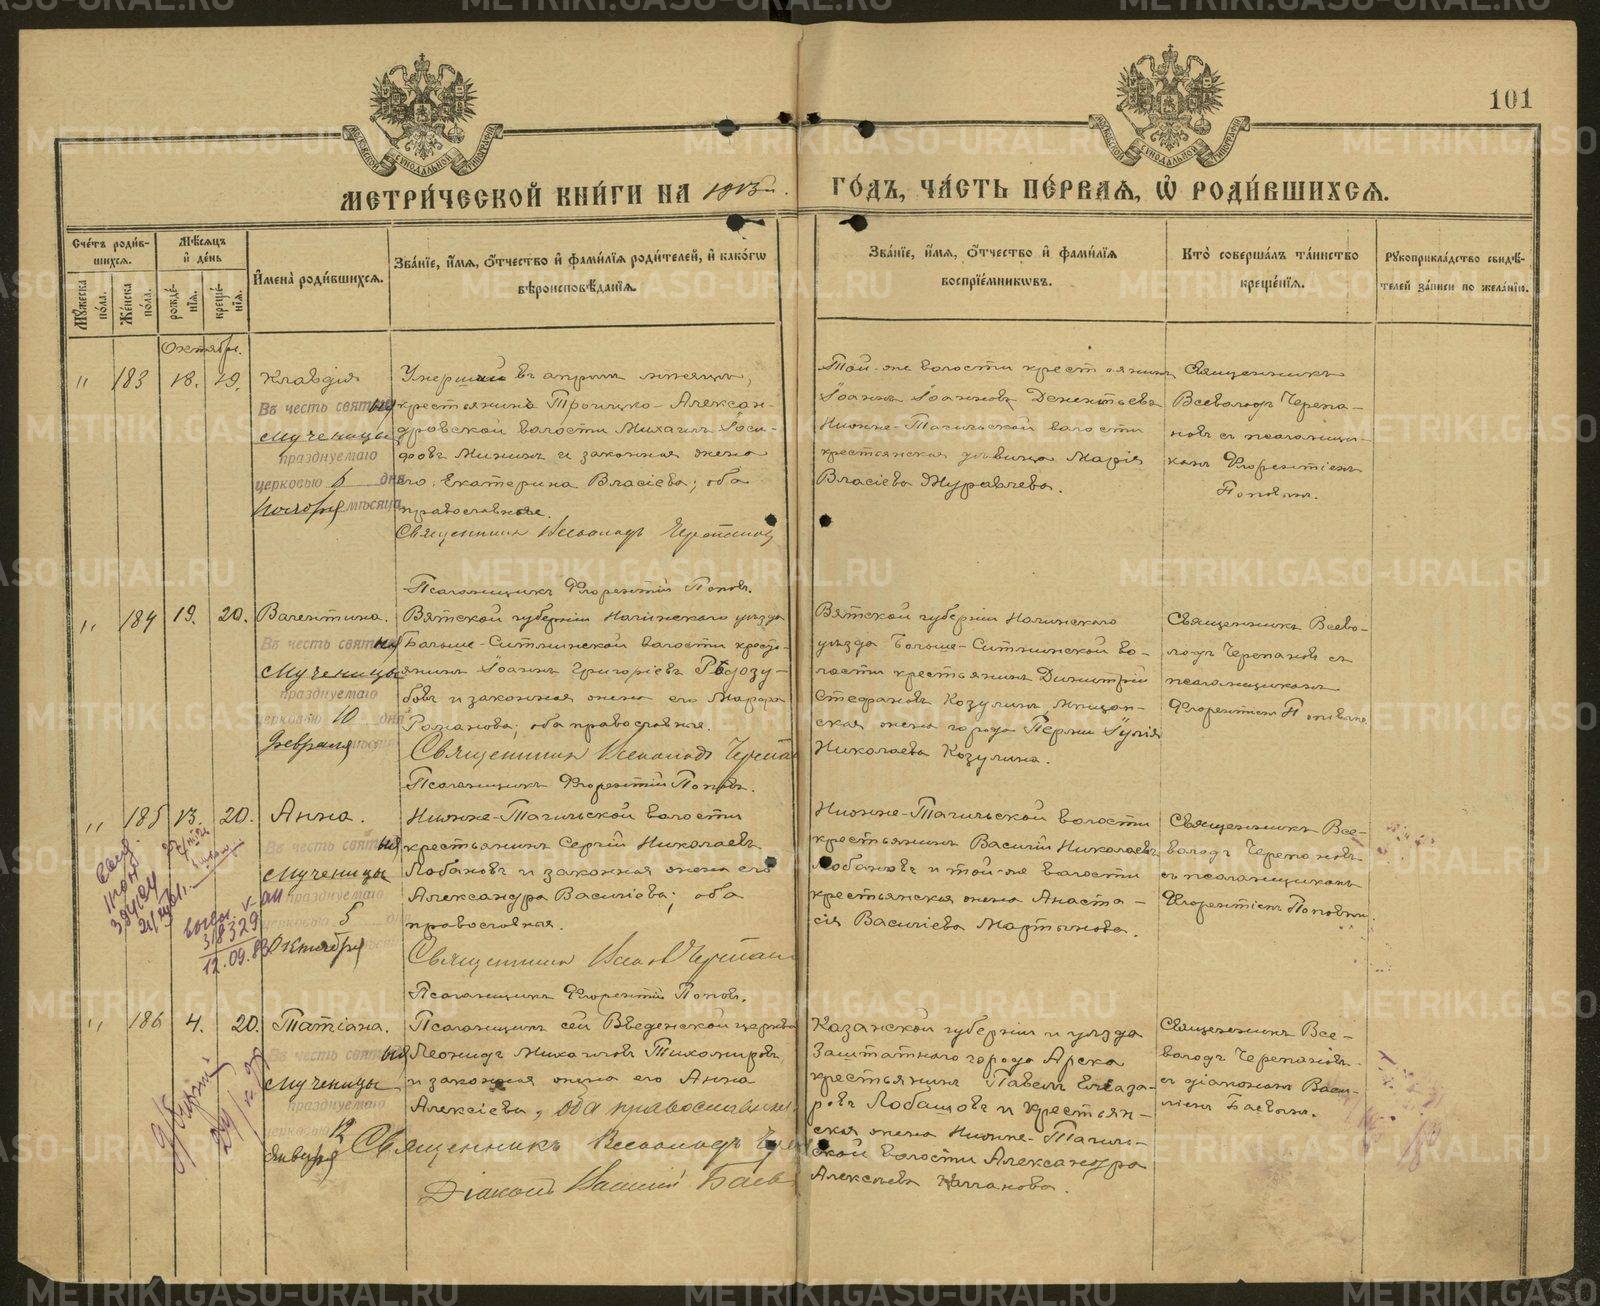 101
МЕТРИ́ЧЕСКОЙ КНИ́ГИ НА 1913й.
ГО́ДЪ, ЧА́СТЬ ПЕ́РВАЯ, Ѡ҆ РОДИ́ВШИХСЯ.
Сче́тъ роди́в-
шихся.
Мѣ́сяцъ
и҆ де́нь
И҆мена̀ роди́вшихся.
Зва́нїе, и҆́мя, ѻ҆́тчество и҆ фами́лїя роди́телей, и҆ како́гѡ
вѣроисповѣ́данїя.
Мꙋ́жеска по́ла.
Же́нска по́ла.
рожде́-нїя.
креще́-нїя.
Зва́нїе, и҆́мя, ѻ҆́тчество и҆ фами́лїя
воспрїе́мникѡвъ.
Кто̀ соверша́лъ та́инство
креще́нїя.
Рꙋкоприкла́дство свидѣ́-
телей за́писи по жела́нїю.
Октября.
" 183 18. 19. Клавдiя
Въ честь святой
мученицы
празднуемаго
церковью 6 дня
Ноября мѣсяца
Умершiй въ апрѣлѣ мѣсяцѣ,
крестьянинъ Троицко-Алексан-
дровской волости Михаилъ Iоси-
фовъ Мининъ и законная жена
его Екатерина Власiева; оба
православные.
Священникъ Всеволодъ Черепановъ
Псаломщикъ Флорентiй Поповъ.
Той-же волости крестьянинъ
Iоаннъ Iоанновъ Дементьевъ
Нижне-Тагильской волости
крестьянская дѣвица Марiя
Власiева Журавлева.
Священникъ
Всеволодъ Черепа-
новъ съ псаломщи-
комъ Флорентiемъ
Поповымъ.
" 184 19. 20. Валентина.
Въ честь святой
мученицы
празднуемаго
церковью 10 дня
Февраля
Вятской губернiи Нолинскаго уѣзда
Больше-Ситминской волости кресть-
янинъ Iоаннъ Григорiевъ
бовъ и законная жена его Марфа
Романова; оба православные.
Священникъ Всеволодъ Черепан
Псаломщикъ Флорентiй Поповъ.
Вятской губернiи Нолинскаго
уѣзда Больше-Ситминской во-
лости крестьянинъ Димитрiй
Стефановъ Козулинъ, мѣщан-
ская жена города Перми Iулiя
Николаева Козулина.
Священникъ Всево-
лодъ Черепановъ съ
псаломщикомъ
Флорентiемъ Поповымъ
" 185 13. 20. Анна.
Въ честь святой
мученицы
празднуемаго
церковью 5 дня
Октября
318329
12.09.83
Нижне-Тагильской волости
крестьянинъ Сергiй Николаевъ
Лобановъ и законная жена его
Александра Василiева; оба
православные.
Священникъ Всевол Черепан
Псаломщикъ Флорентiй Поповъ.
Нижне-Тагильской волости
крестьянинъ Василiй Николаевъ
Лобановъ и той-же волости
крестьянская жена Анаста-
сiя Василiева Мартынова.
Священникъ Все-
володъ Черепановъ
съ псаломщикомъ
Флорентiемъ Поповымъ.
" 186 4. 20. Татiана.
Въ честь святой
мученицы
празднуемаго
церковью 12
Января
Псаломщикъ сей Введенской церкви
Леонидъ Михаиловъ Тихомировъ,
и законная жена его Анна
Алексiева, оба православные.
Священникъ Всеволодъ Чере
Дiаконъ Василiй Баев
Казанской губернiи и уѣзда
Заштатнаго города Арска
крестьянинъ Павелъ Елеаза-
ровъ Лобашовъ и крестьян-
ская жена Нижне-Тагиль-
ской волости Александра
Алексѣева
Священникъ Все-
володъ Черепановъ
съ дiакономъ Васи-
лiемъ Баевымъ.
METRIKI.GASO-URAL.RU